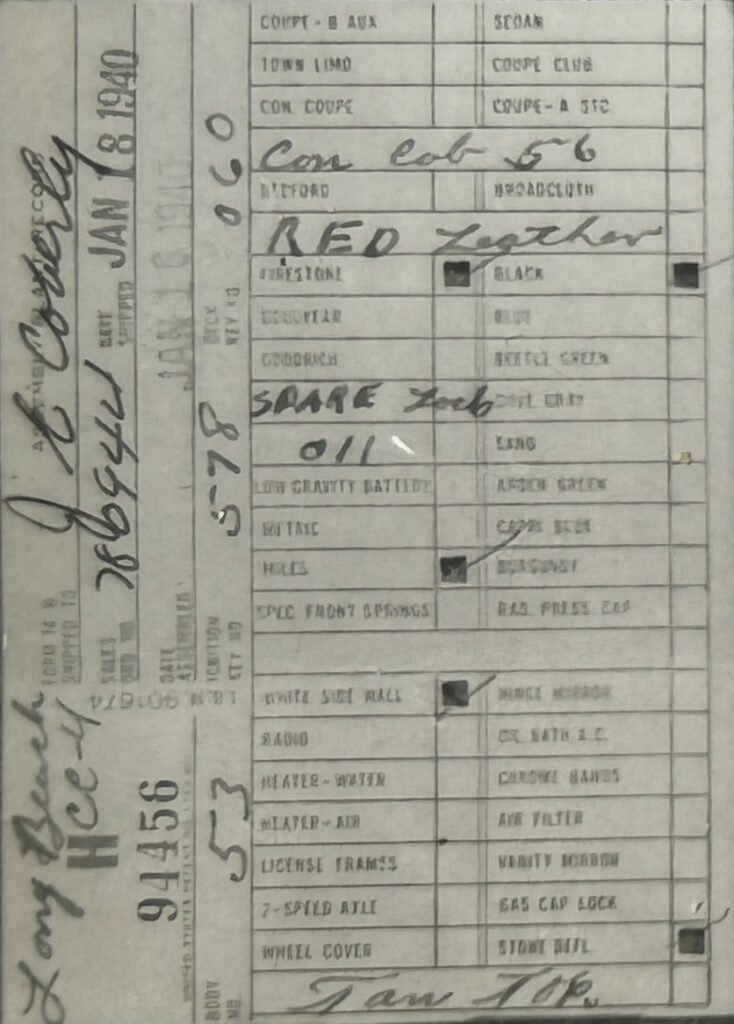 COUPE-B AUX SEDAN
TOWN LIMO COUPE CLUB
CON COUPE COUPE-A STD
Con Cab 56
BEDFORD BROADCLOTH
RED Leather
FIRESTONE BLACK
GOODYEAR BLUE
GOODRICH BEETLE GREEN
SPARE Lock COVE GRAY
011
LOW GRAVITY BATTERY ARDEN GREEN
METRIC
MILES BURGUNDY
SPEC FRONT SPRINGS GAS PRESS CAP
WHITE SIDE WALL MIRROR
RADIO OIL BATH A.C.
HEATER-WATER CHROME BANDS
HEATER-AIR AIR FILTER
LICENSE FRAMES VANITY MIRROR
2-SPEED AXLE GAS CAP LOCK
WHEEL COVER STONE DEFL
Tan Top.
FORM 14 B
SHIPPED TO J E Coverly
Long Beach
SALES ORD NO.
DATE SHIPPED JAN 18 1940
HCC-4
DATE ASSEMBLED JAN 16 1940
94456
I.B.M. 901674
IGNITION KEY NO 578
DECK KEY NO 060
BODY NO. 53